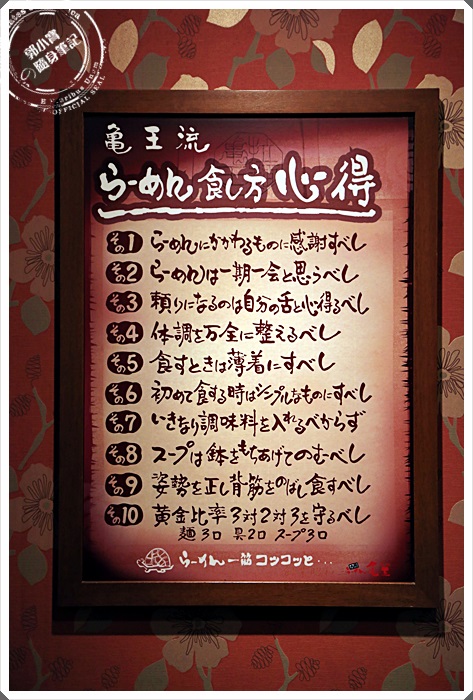 郭小寶
の隨身筆記
OFFICIAL SEAL
亀王流
らーめん食し方心得
その1 らーめんにかかわるものに感謝すべし
その2 らーめんは一期一会と思うべし
その3 頼りになるのは自分の舌と心得るべし
その4 体調を万全に整えるべし
その5 食すときは薄着にすべし
その6 初めて食する時はシンプルなものにすべし
その7 いきなり調味料を入れるべからず
その8 スープは鉢をもちあげてのむべし
その9 姿勢を正し背筋をのばし食すべし
その10 黄金比率3対2対3を守るべし
麺3口 具2口 スープ3口
らーめん一筋コツコツと…